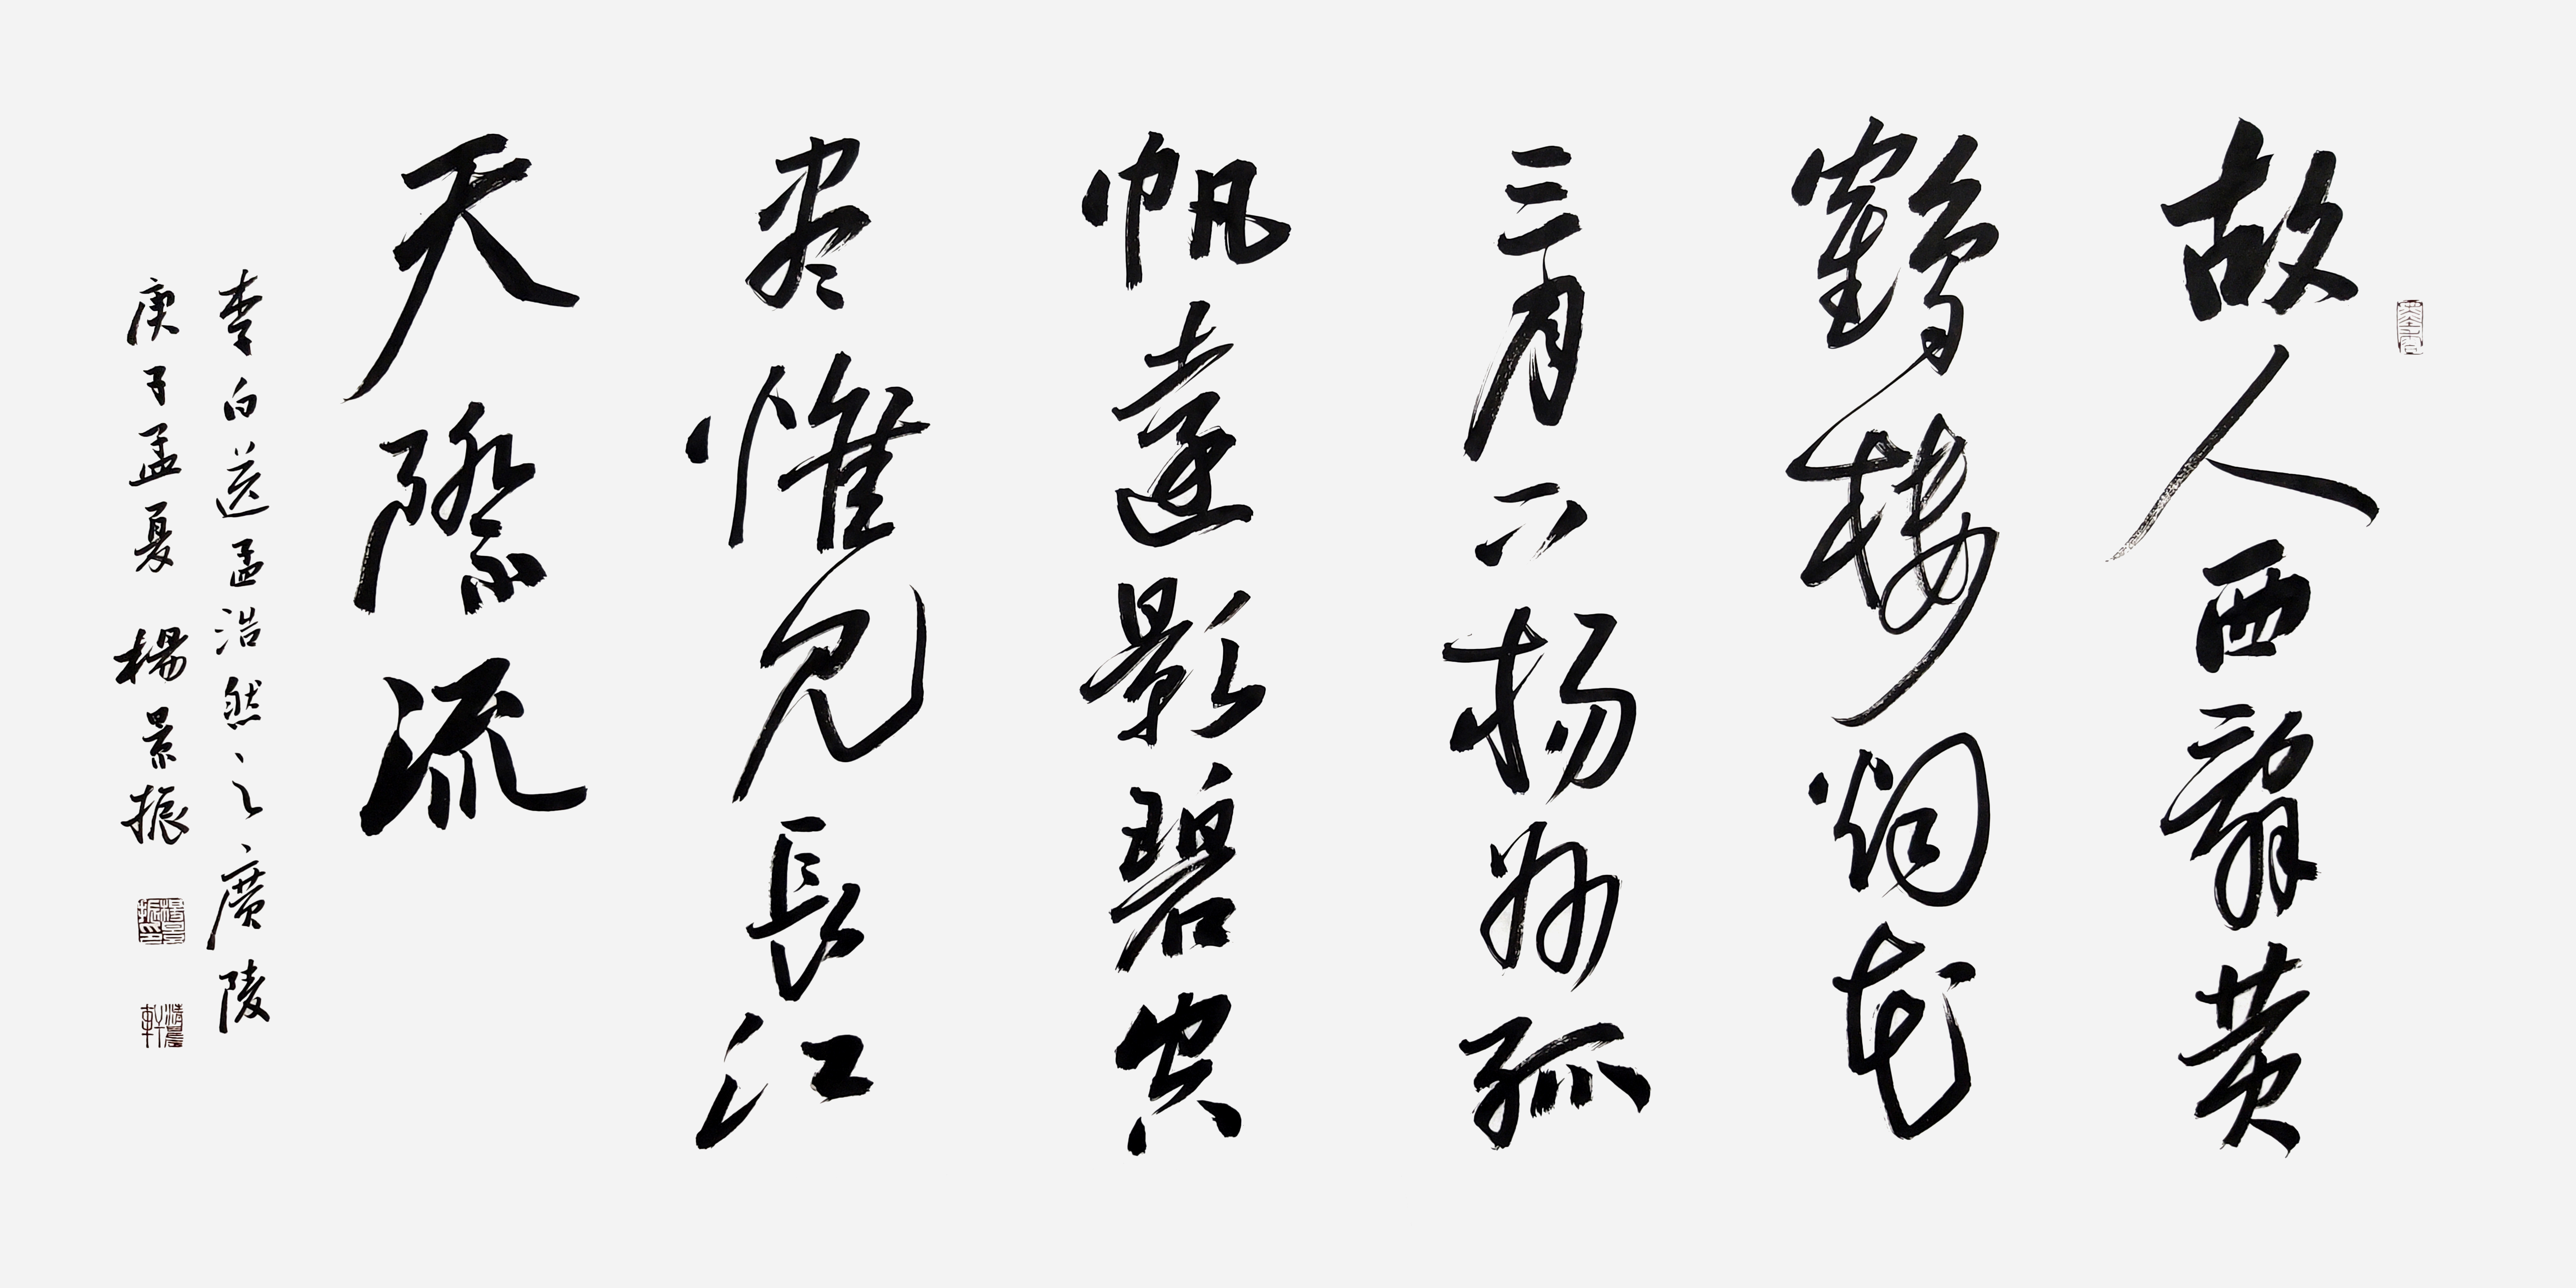 故人西辭黄
鶴楼烟花
三月下杨州孤
帆遠影碧空
尽惟見長江
天際流
李白送孟浩然之廣陵
庚子孟夏 楊景振
楊景振印